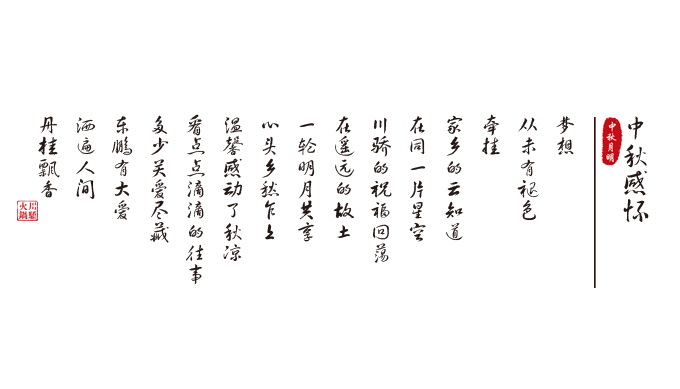 中秋感怀
中秋月明
梦想
从未有褪色
牵挂
家乡的云知道
在同一片星空
川骄的祝福回荡
在遥远的故土
一轮明月共享
心头乡愁乍上
温馨感动了秋凉
看点点滴滴的往事
多少关爱尽藏
东鹏有大爱
洒遍人间
丹桂飘香